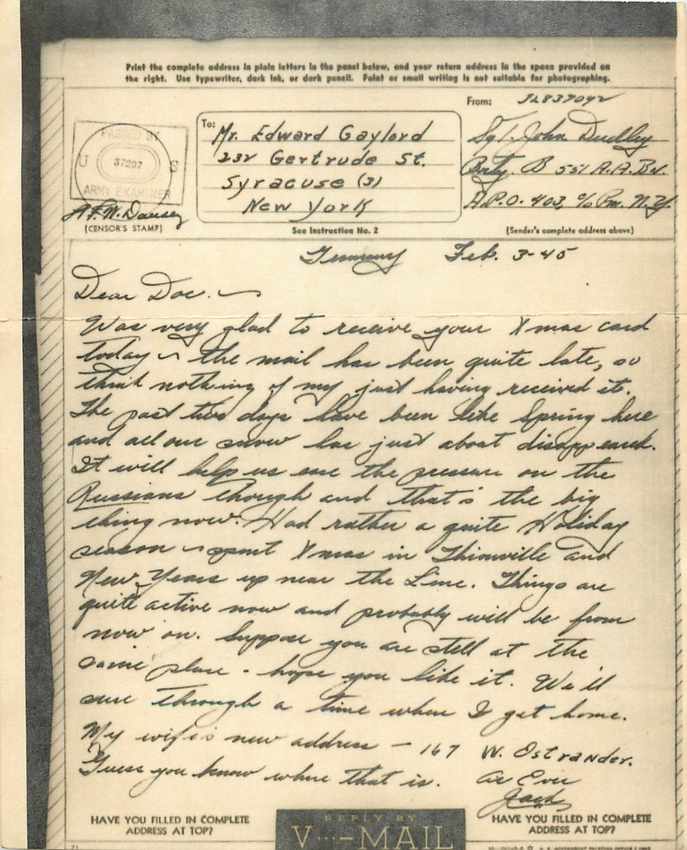 Print the complete address in plain letters in the panel below, and your return address in the space provided on
the right. Use typewriter, dark ink, or dark pencil. Faint or small writing is not suitable for photographing.
PASSED BY
U S
37207
ARMY EXAMINER
(CENSOR'S STAMP)
To:
Mr. Edward Gaylord
232 Gertrude St.
Syracuse (3)
New York
See Instruction No. 2
From:
Sgt. John Dudley
Btry. B 551 A.A. Bn.
A.P.O. 403, c/o Pm. N.Y.
(Sender's complete address above)
Germany Feb. 3-45
Dear Doc. ~
Was very glad to receive your Xmas card
today ~ the mail has been quite late, so
think nothing of my just having received it.
The past two days have been like Spring here
and all our snow has just about disappeared.
It will help us ease the pressure on the
Russians though and that's the big
thing now. Had rather a quite Holiday
season ~ spent Xmas in Thionville and
New Years up near the Line. Things are
quite active now and probably will be from
now on. Suppose you are still at the
same place - hope you like it. We'll
sure through a time when I get home.
My wife's new address - 167 W. Ostrander.
Guess you know where that is.
As Ever
Jack
HAVE YOU FILLED IN COMPLETE
ADDRESS AT TOP?
REPLY BY
V···—MAIL
HAVE YOU FILLED IN COMPLETE
ADDRESS AT TOP?